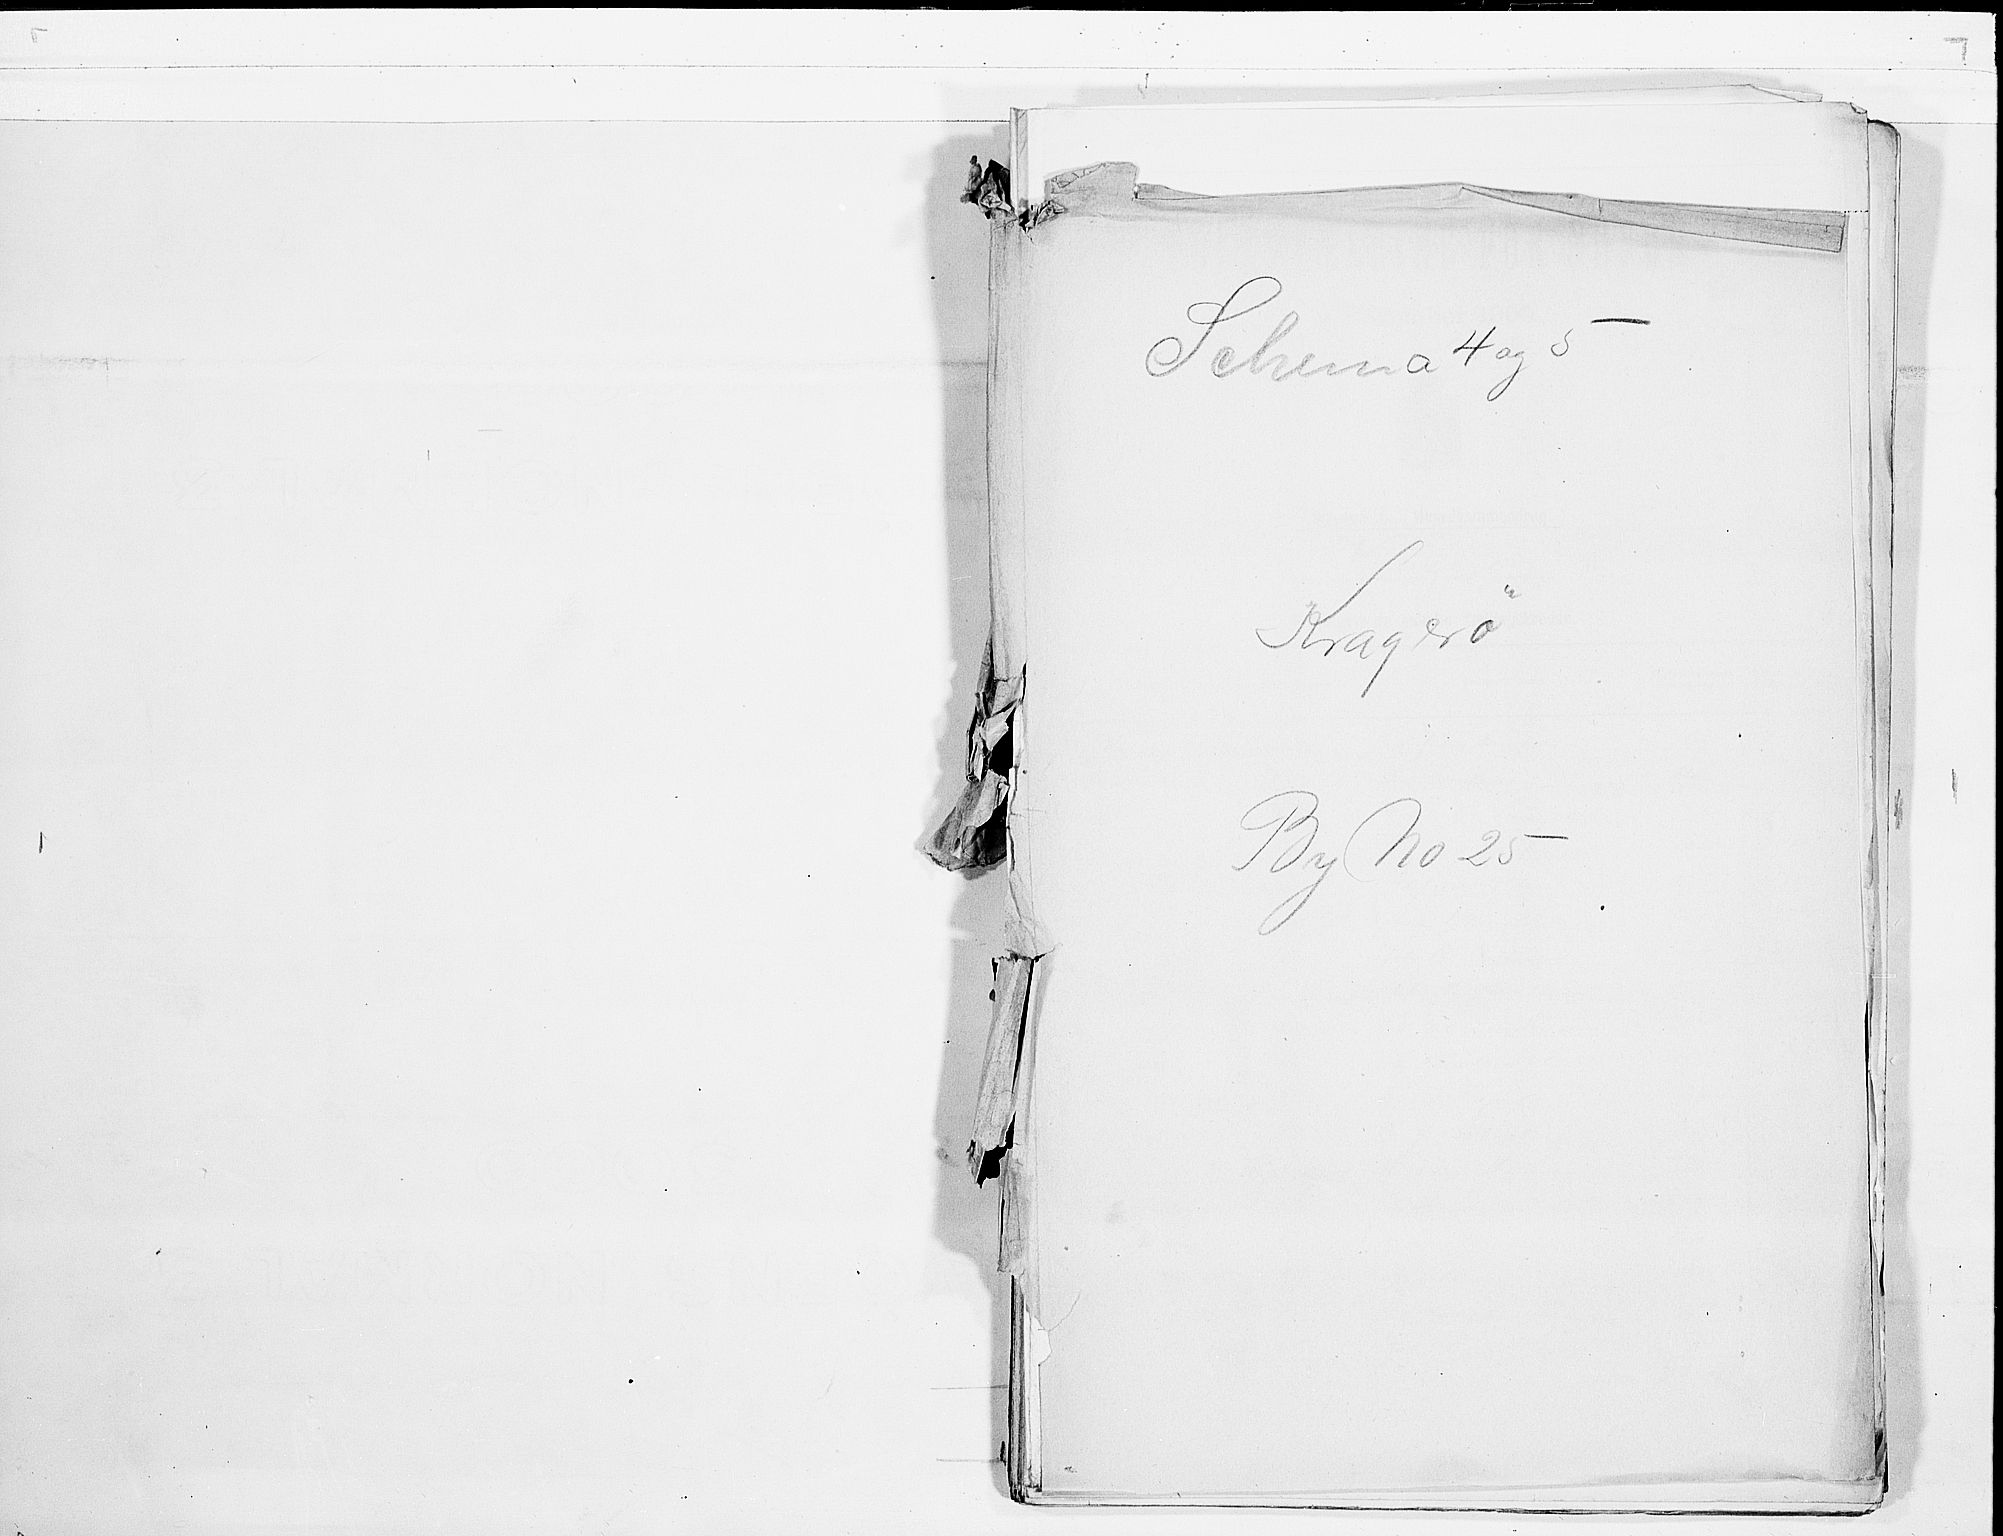 Schema 4 og 5
Kragerö
By No 25